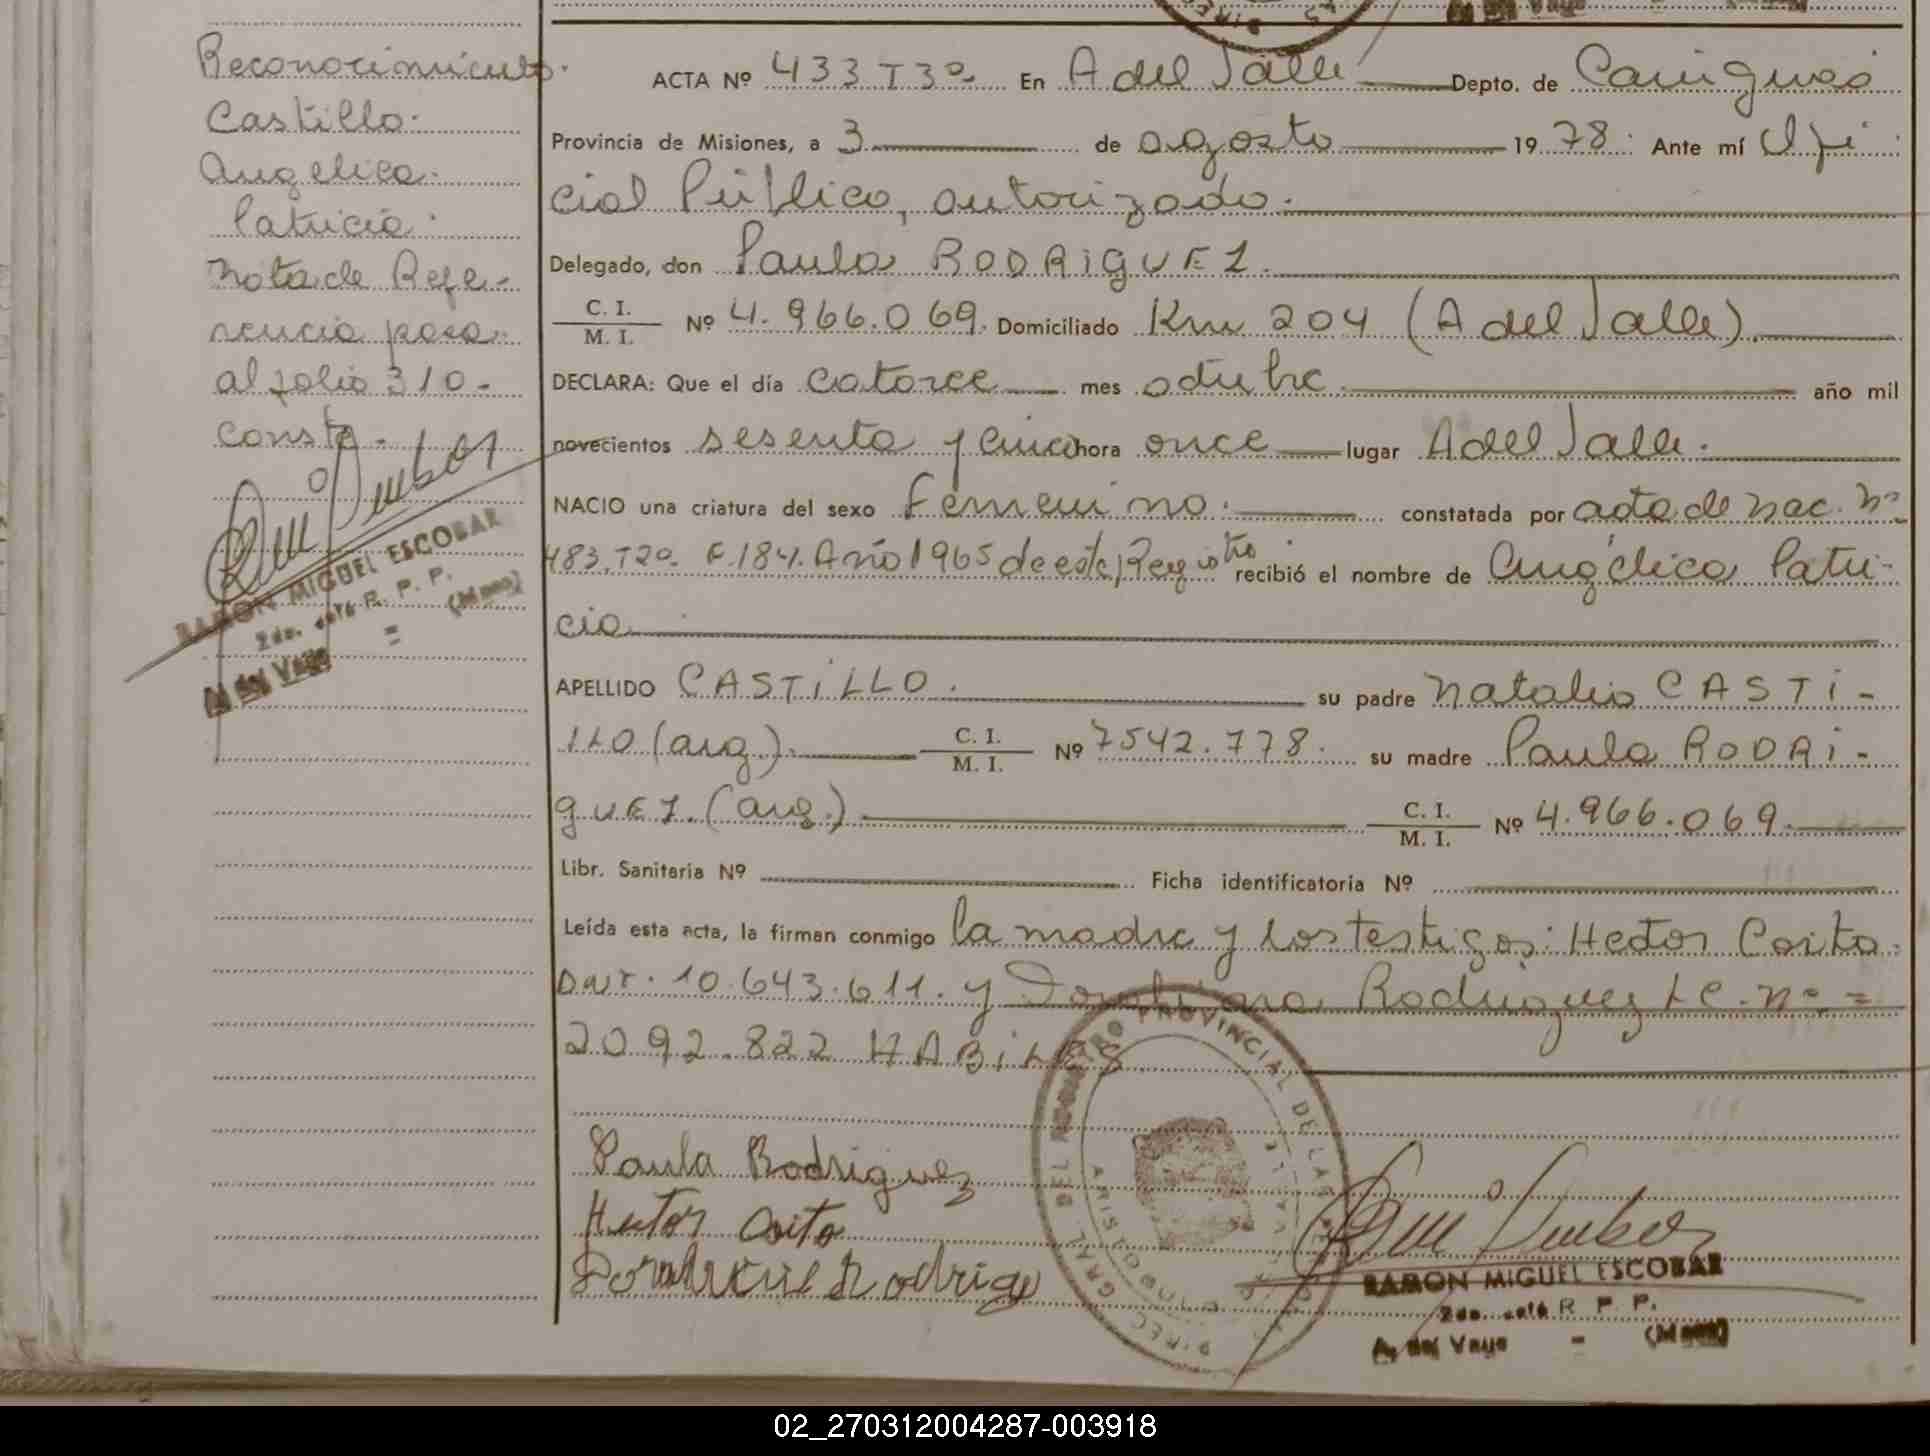 Reconocimiento.
Castillo.
Angelica.
Patricia.
Nota de Refe-
rencia pasa
al folio 310-
consta-
RAMON MIGUEL ESCOBAR
2do. R. P. P.
A. del Valle = (Mnes)
ACTA Nº 433 T3º En A del Valle Depto. de Cainguas
Provincia de Misiones, a 3 de agosto 1978. Ante mí Ofi
cial Público, autorizado.
Delegado, don Paula RODRIGUEZ.
C. I.
M. I. Nº 4.966.069. Domiciliado Km 204 (A del Valle).
DECLARA: Que el día catorce mes octubre. año mil
novecientos sesenta y cinco hora once lugar A del Valle.
NACIO una criatura del sexo Femenino. constatada por acta de nac. Nº
483. T2º. F.184. Año 1965 de este Registro recibió el nombre de Angélica Patri-
cia
APELLIDO CASTILLO. su padre Natalio CASTI-
LLO (arg). C. I. M. I. Nº 7542.778. su madre Paula RODRI-
GUEZ. (arg.) C. I. M. I. Nº 4.966.069.
Libr. Sanitaria Nº Ficha identificatoria Nº
Leída esta acta, la firman conmigo la madre y los testigos: Hector Coito.
DNI. 10.643.611. y Rodriguez LC. Nº =
2092.822 HABILES.
REGISTRO PROVINCIAL DE LAS PERSONAS
DIREC. GRAL. DEL
Paula Rodriguez
Hector Coito
Rodrigu
RAMON MIGUEL ESCOBAR
2do. R. P. P.
A. del Valle = (Mnes)
02_270312004287-003918